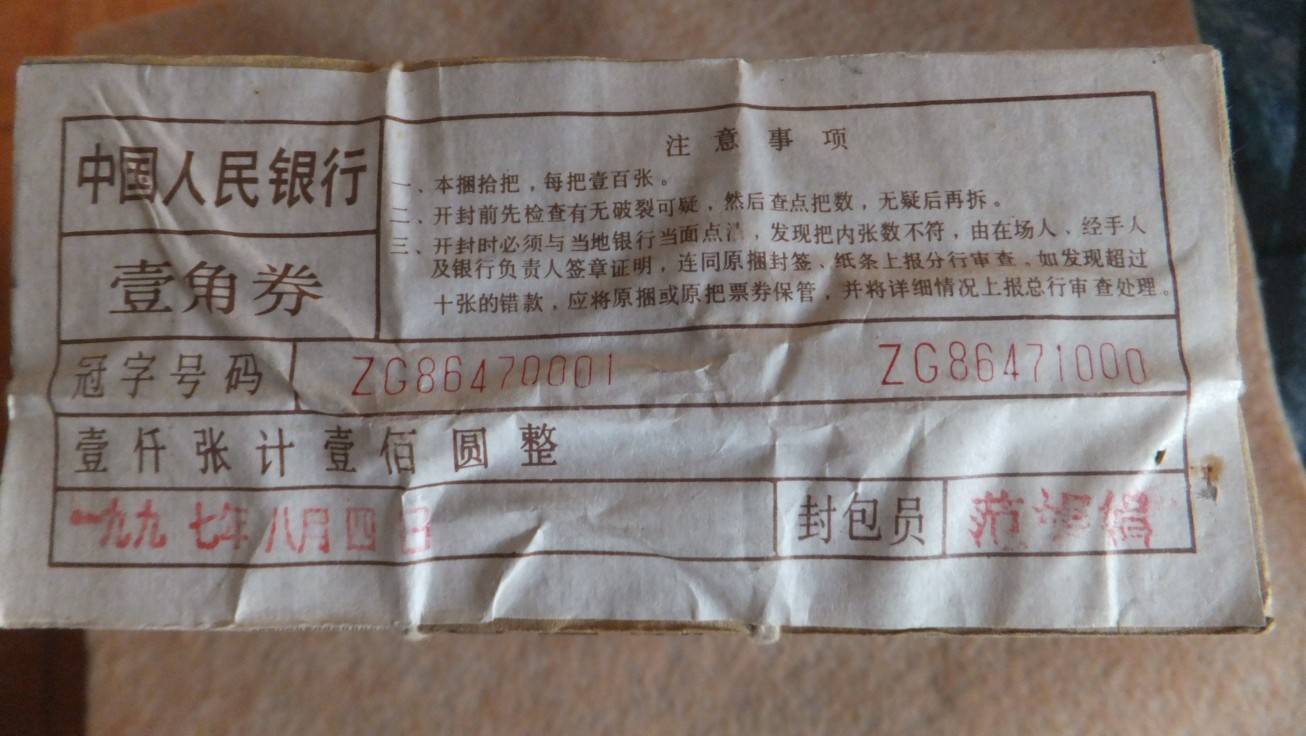 中国人民银行
壹角券
注意事项
一、本捆拾把，每把壹百张。
二、开封前先检查有无破裂可疑，然后查点把数，无疑后再拆。
三、开封时必须与当地银行当面点清，发现把内张数不符，由在场人、经手人
及银行负责人签章证明，连同原捆封签、纸条上报分行审查、如发现超过
十张的错款，应将原捆或原把票券保管，并将详细情况上报总行审查处理。
冠字号码 ZG86470001 ZG86471000
壹仟张计壹佰圆整
一九九七年八月四日 封包员 范